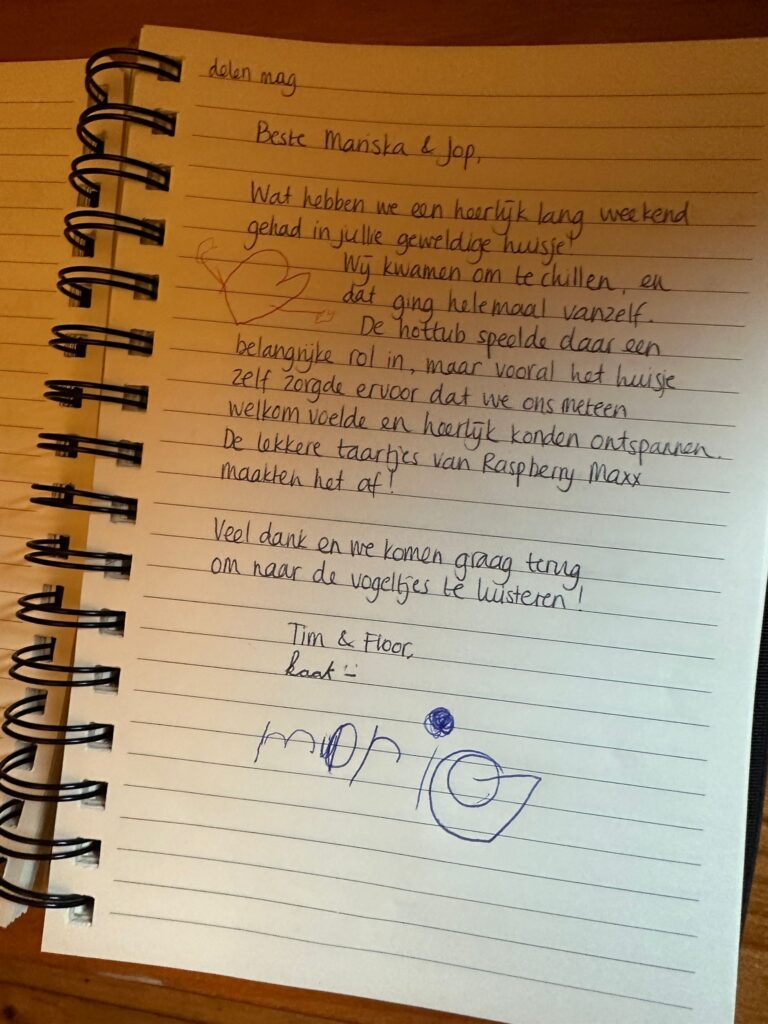 delen mag
Beste Mariska & Jop,
Wat hebben we een heerlijk lang weekend
gehad in jullie geweldige huisje!
Wij kwamen om te chillen, en
dat ging helemaal vanzelf.
De hottub speelde daar een
belangrijke rol in, maar vooral het huisje
zelf zorgde ervoor dat we ons meteen
welkom voelde en heerlijk konden ontspannen.
De lekkere taartjes van Raspberry Maxx
maakten het af!
Veel dank en we komen graag terug
om naar de vogeltjes te luisteren!
Tim & Floor,
Kaat :-)